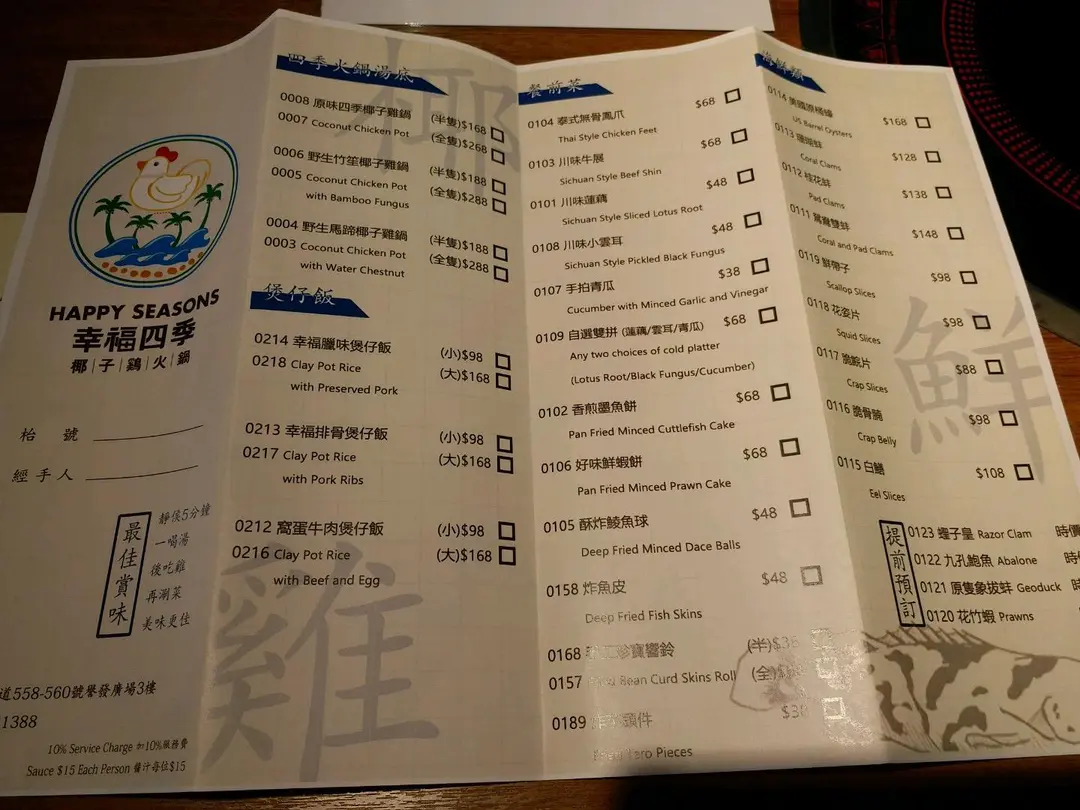 HAPPY SEASONS
幸福四季
椰|子|鷄|火|鍋
枱 號
經手人
最佳賞味
靜侯5分鐘
一喝湯
後吃雞
再涮菜
美味更佳
道558-560號譽發廣場3樓
1388
10% Service Charge 加10%服務費
Sauce $15 Each Person 醬汁每位$15
四季火鍋湯底
0008 原味四季椰子雞鍋 (半隻)$168
0007 Coconut Chicken Pot (全隻)$268
0006 野生竹笙椰子雞鍋 (半隻)$188
0005 Coconut Chicken Pot (全隻)$288
with Bamboo Fungus
0004 野生馬蹄椰子雞鍋 (半隻)$188
0003 Coconut Chicken Pot (全隻)$288
with Water Chestnut
煲仔飯
0214 幸福臘味煲仔飯 (小)$98
0218 Clay Pot Rice (大)$168
with Preserved Pork
0213 幸福排骨煲仔飯 (小)$98
0217 Clay Pot Rice (大)$168
with Pork Ribs
0212 窩蛋牛肉煲仔飯 (小)$98
0216 Clay Pot Rice (大)$168
with Beef and Egg
椰
雞
餐前菜
0104 泰式無骨鳳爪 $68
Thai Style Chicken Feet
0103 川味牛展 $68
Sichuan Style Beef Shin
0101 川味蓮藕 $48
Sichuan Style Sliced Lotus Root
0108 川味小雲耳 $48
Sichuan Style Pickled Black Fungus
0107 手拍青瓜 $38
Cucumber with Minced Garlic and Vinegar
0109 自選雙拼 (蓮藕/雲耳/青瓜) $68
Any two choices of cold platter
(Lotus Root/Black Fungus/Cucumber)
0102 香煎墨魚餅 $68
Pan Fried Minced Cuttlefish Cake
0106 好味鮮蝦餅 $68
Pan Fried Minced Prawn Cake
0105 酥炸鯪魚球 $48
Deep Fried Minced Dace Balls
0158 炸魚皮 $48
Deep Fried Fish Skins
0168 珍寶響鈴 (半)$38
0157 Bean Curd Skins Roll (全)
0189 頭件
Taro Pieces
海鮮類
0114 美國原桶蠔 $168
US Barrel Oysters
0113 珊瑚蚌 $128
Coral Clams
0112 桂花蚌 $138
Pad Clams
0111 鴛鴦雙蚌 $148
Coral and Pad Clams
0119 鮮帶子 $98
Scallop Slices
0118 花姿片 $98
Squid Slices
0117 脆鯇片 $88
Crap Slices
0116 脆骨腩 $98
Crap Belly
0115 白鱔 $108
Eel Slices
鮮
提前預訂
0123 蟶子皇 Razor Clam 時價
0122 九孔鮑魚 Abalone 時
0121 原隻象拔蚌 Geoduck 時
0120 花竹蝦 Prawns